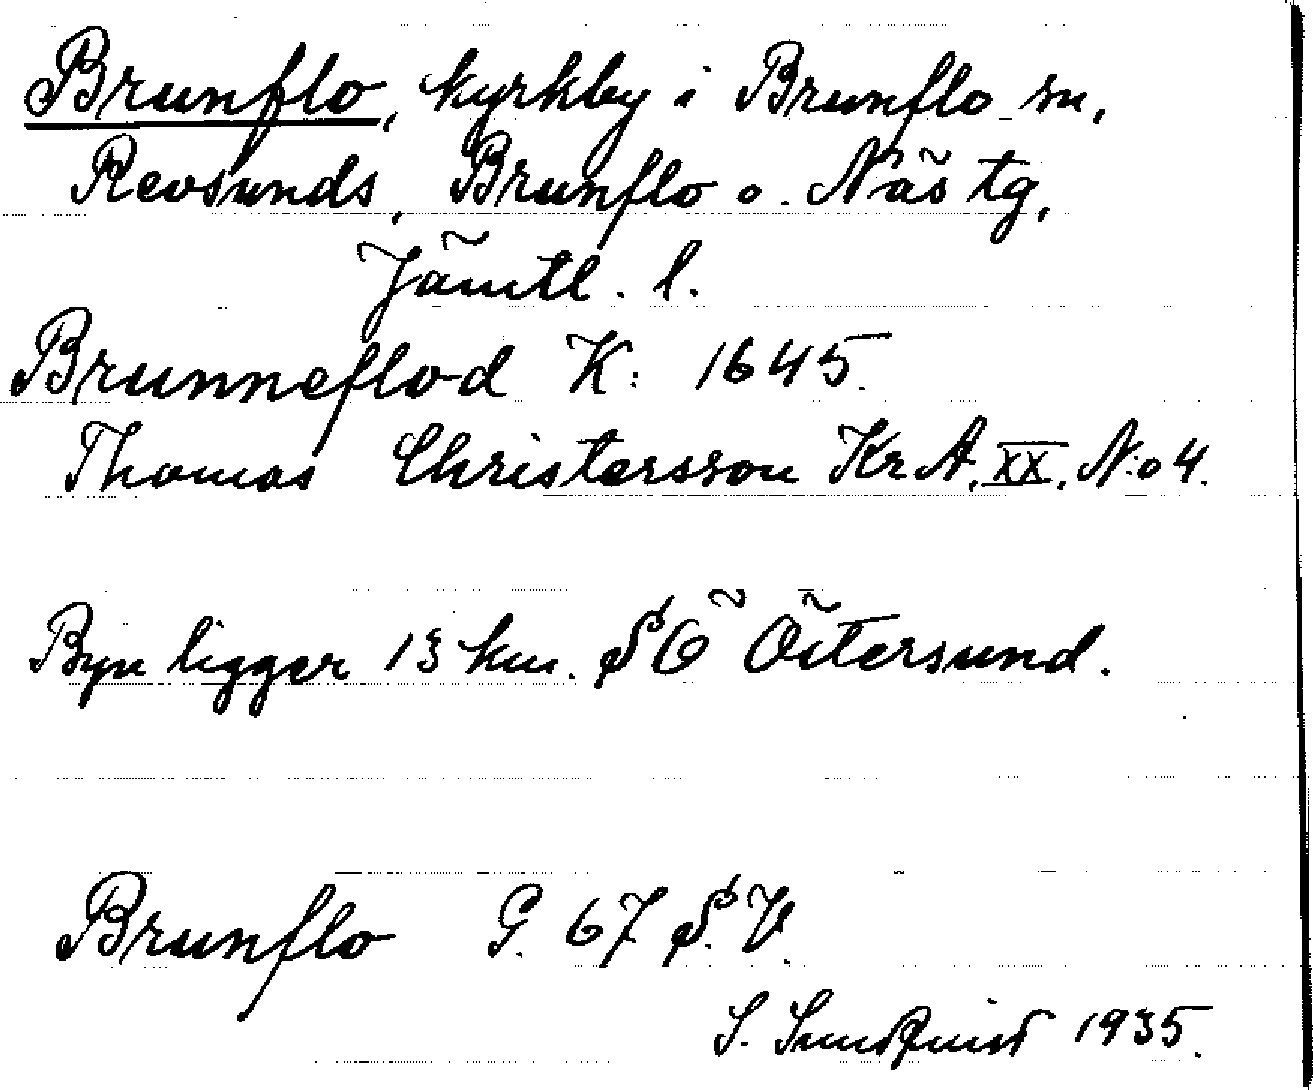 Brunflo, kyrkby i Brunflo sn,
Revsunds, Brunflo o. Näs tg,
Jämtl. l.
Brunneflod K: 1645.
Thomas Christersson KrA. XX. N:o 4.
Byn ligger 13 km. SÖ Östersund.
Brunflo G. 67 S.V.
S. Sundquist 1935.